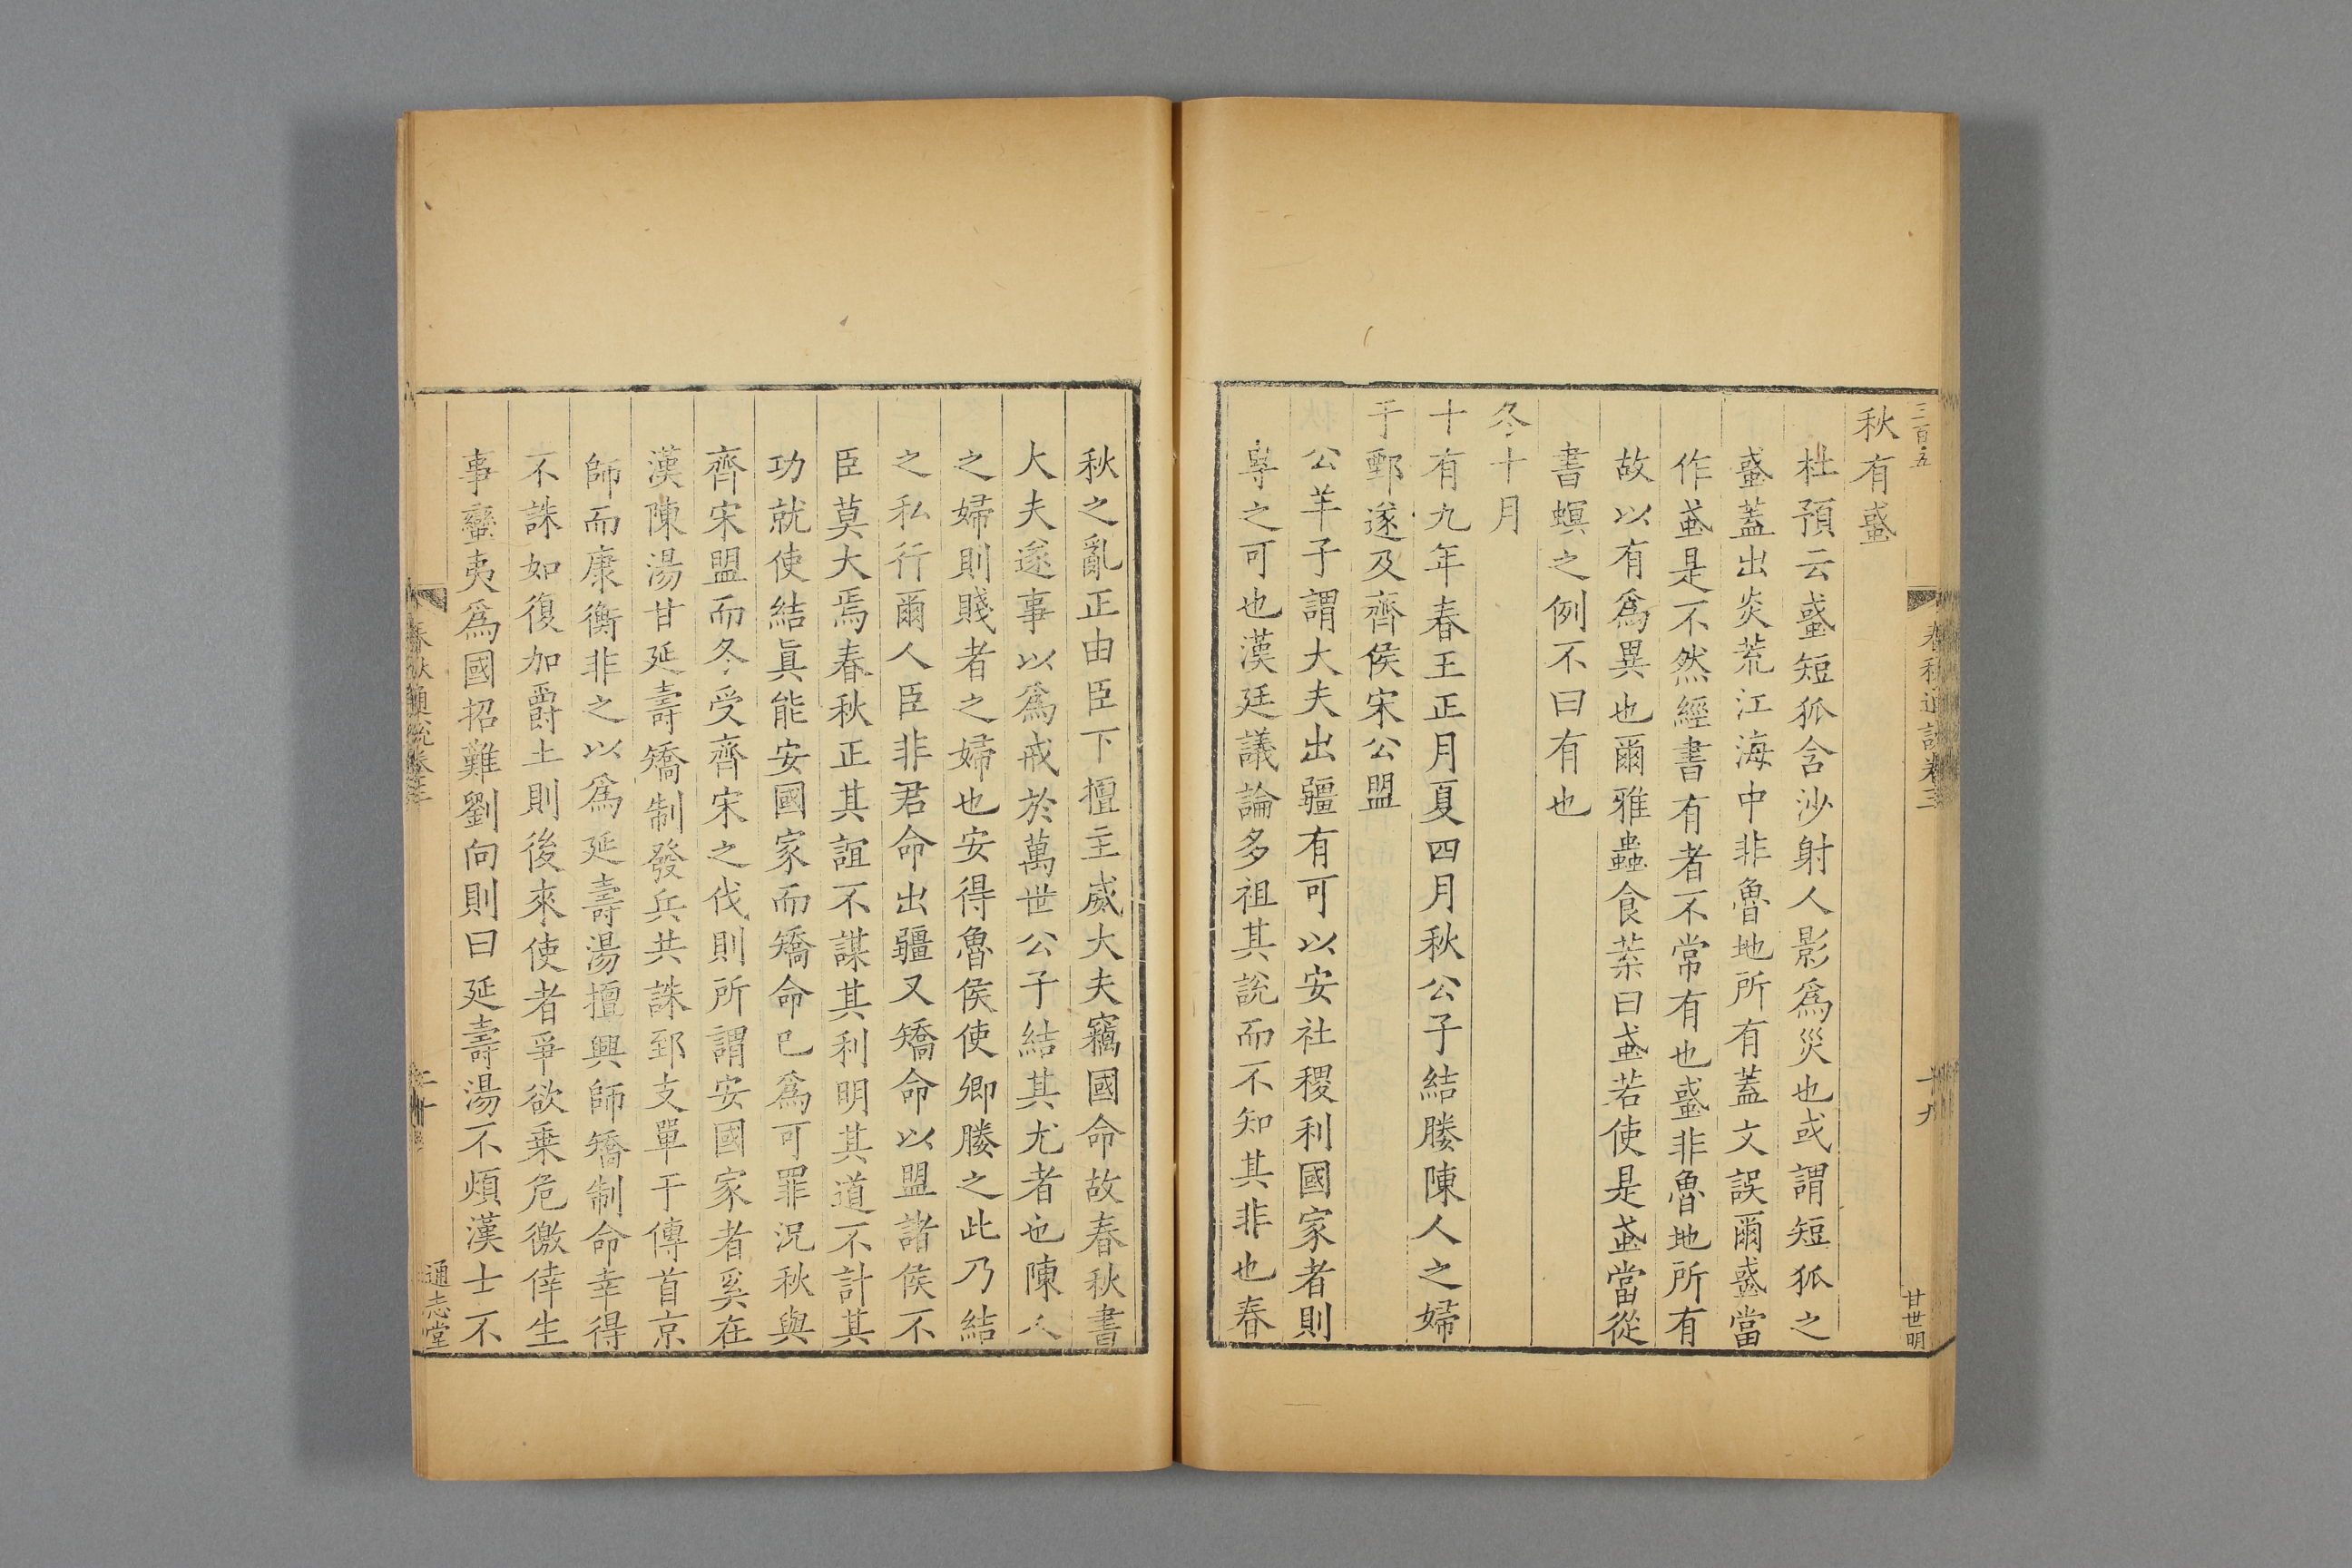 三百五
春秋通說卷三
十九
甘世明
秋有蜮
杜預云蜮短狐含沙射人影爲災也或謂短狐之
蜮蓋出炎荒江海中非魯地所有蓋文誤爾蜮當
作蟘是不然經書有者不常有也蜮非魯地所有
故以有爲異也爾雅蟲食葉曰蟘若使是蟘當從
書螟之例不曰有也
冬十月
十有九年春王正月夏四月秋公子結媵陳人之婦
于鄄遂及齊侯宋公盟
公羊子謂大夫出疆有可以安社稷利國家者則
專之可也漢廷議論多祖其說而不知其非也春
秋之亂正由臣下擅主威大夫竊國命故春秋書
大夫遂事以爲戒於萬世公子結其尤者也陳人
之婦則賤者之婦也安得魯侯使卿媵之此乃結
之私行爾人臣非君命出疆又矯命以盟諸侯不
臣莫大焉春秋正其誼不謀其利明其道不計其
功就使結眞能安國家而矯命已爲可罪況秋與
齊宋盟而冬受齊宋之伐則所謂安國家者奚在
漢陳湯甘延壽矯制發兵共誅郅支單于傳首京
師而康衡非之以爲延壽湯擅興師矯制命幸得
不誅如復加爵土則後來使者爭欲乗危徼倖生
事蠻夷爲國招難劉向則曰延壽湯不煩漢士不
春秋通說卷三
二十
通志堂